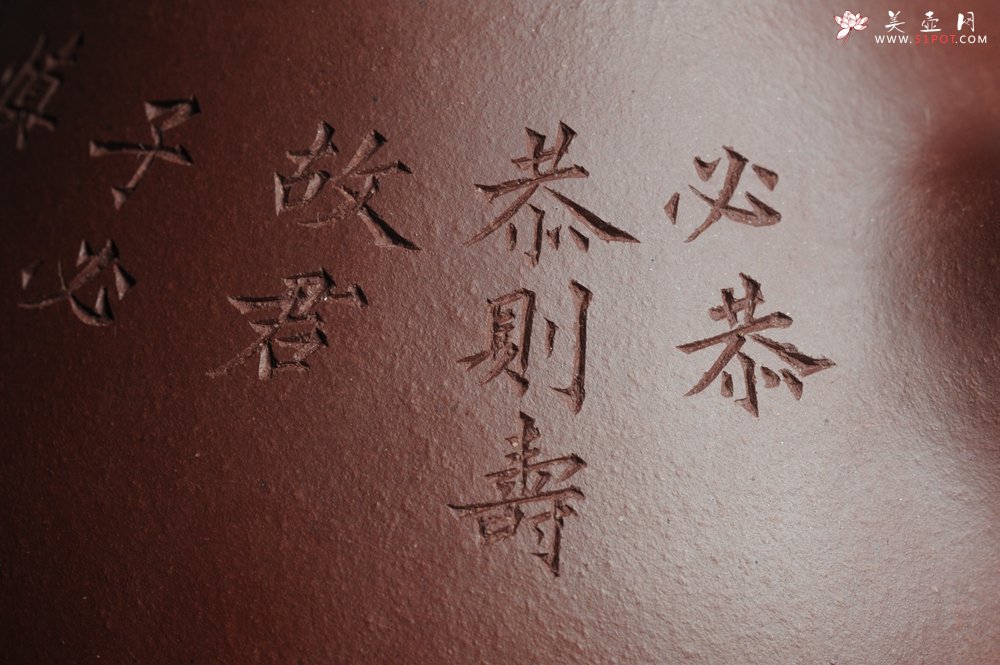 必恭
恭則壽
故君
子必
美壶网
WWW.51POT.COM